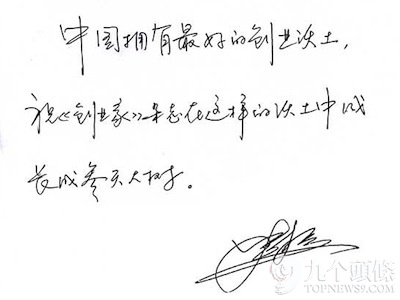 中国拥有最好的创业沃土，
祝《创业家》杂志在这样的沃土中成
长成参天大树。
九个頭條
TOPNEWS9.COM